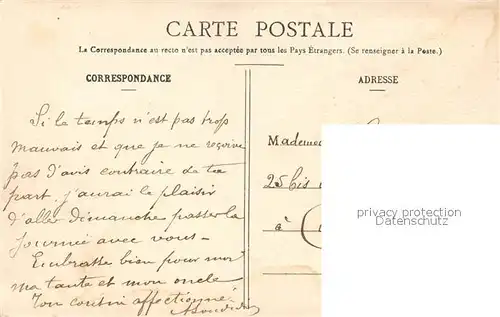 CARTE POSTALE
La Correspondance au recto n'est pas acceptée par tous les Pays Étrangers. (Se renseigner à la Poste.)
CORRESPONDANCE
Si le temps n'est pas trop
mauvais et que je ne reçoive
pas d'avis contraire de ta
part. j'aurai le plaisir
d'aller dimanche passer la
journée avec vous _
Embrasse bien pour moi
ma tante et mon oncle
Ton cousin affectionné
ADRESSE
Mademoi
25 bis
à
privacy protection
Datenschutz